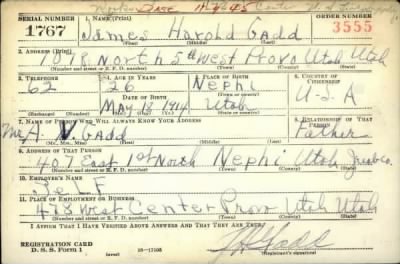 DATE 11-4-45 Center
SERIAL NUMBER 1. NAME (Print) ORDER NUMBER
1767 James Harold Gadd 3555
2. ADDRESS (Print)
1878 North 5th West Provo Utah Utah
(Number and street or R. F. D. number) (Town) (County) (State)
3. TELEPHONE 4. AGE IN YEARS 5. PLACE OF BIRTH 6. COUNTRY OF CITIZENSHIP
62 26 Nephi U-S-A
DATE OF BIRTH
May 18 1914 Utah
7. NAME OF PERSON WHO WILL ALWAYS KNOW YOUR ADDRESS 8. RELATIONSHIP OF THAT PERSON
Mr A. V. Gadd Father
(Mr., Mrs., Miss) (First) (Middle) (Last)
9. ADDRESS OF THAT PERSON
407 East 1st North Nephi Utah Juab Co.
(Number and street or R. F. D. number) (Town) (County) (State)
10. EMPLOYER'S NAME
SELF
11. PLACE OF EMPLOYMENT OR BUSINESS
478 West Center Prov Utah Utah
(Number and street or R. F. D. number) (Town) (County) (State)
I AFFIRM THAT I HAVE VERIFIED ABOVE ANSWERS AND THAT THEY ARE TRUE.
REGISTRATION CARD
D. S. S. Form 1 16-17105 (Registrant's signature)